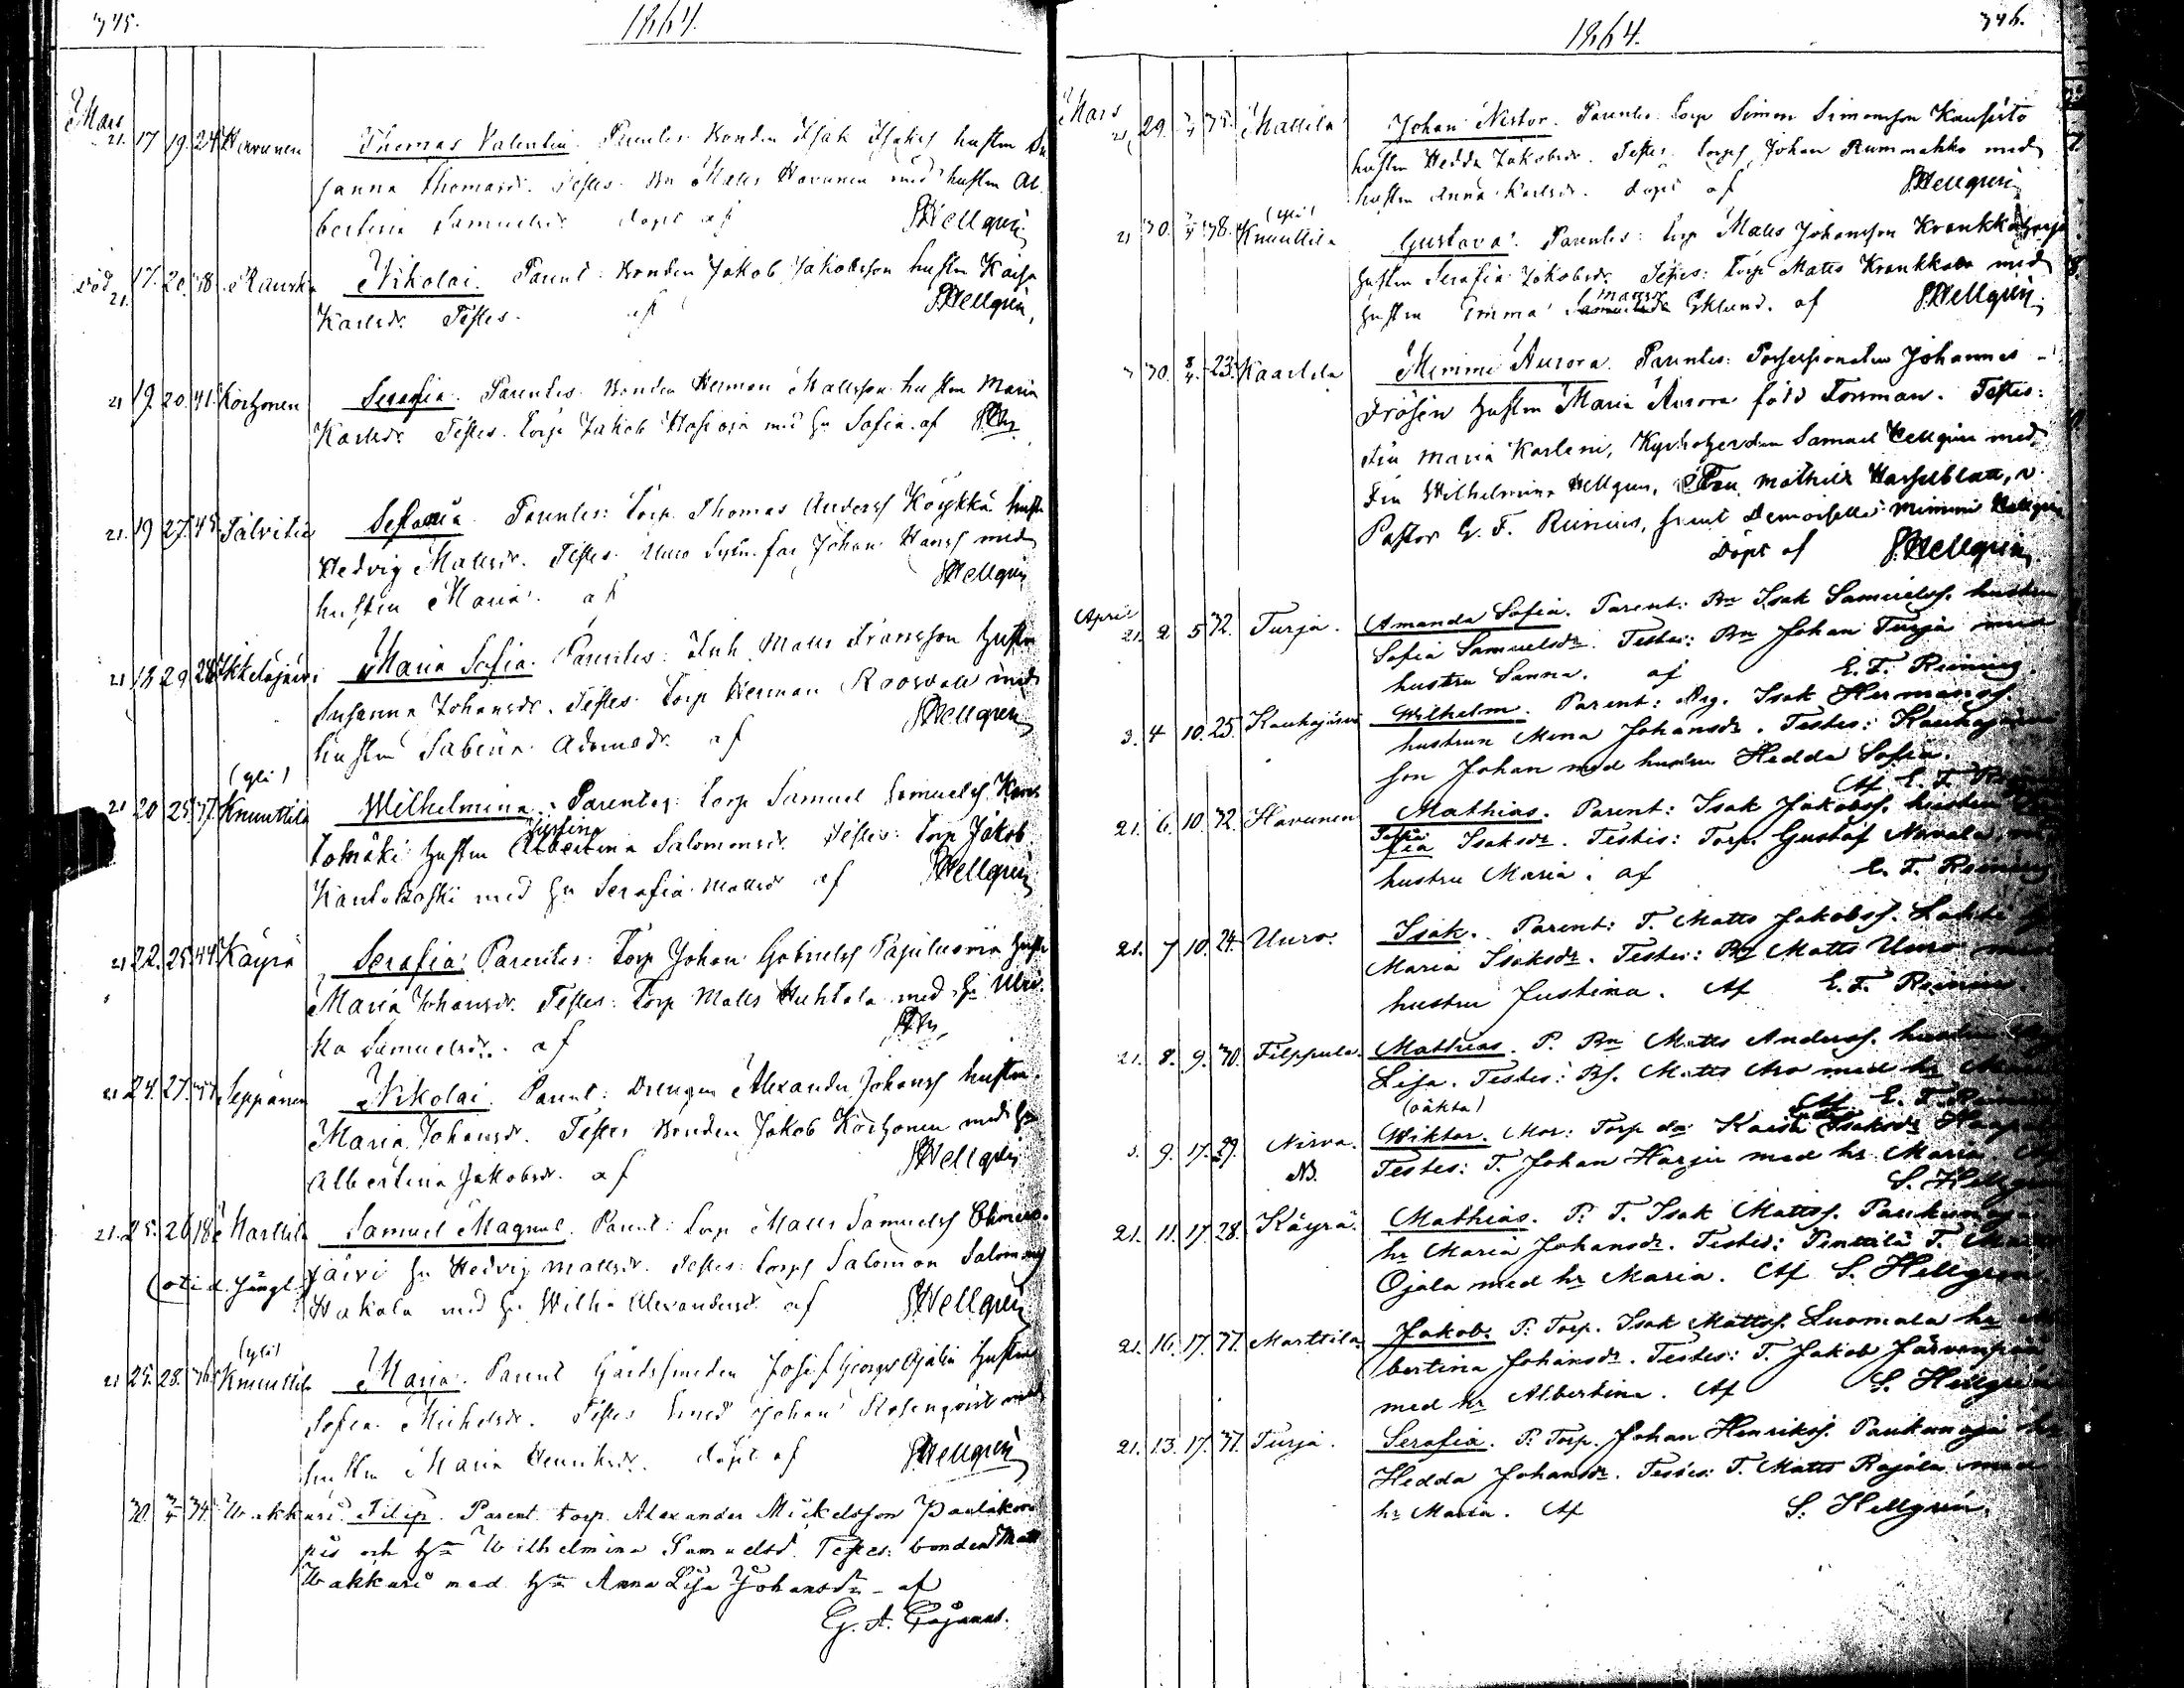 345.
1864.
Mars
21. 17 19. 24 Havunen Thomas Valentin. Parentes. Bonden Isak Isaks hustru Su
sanna Thomasdr. Testes. Bn Matts Havunen med hustru Al
bertina Samuelsdr. döpt af SHellgren
död
21. 17. 20. 18. Rauska Nikolai. Parent: Bonden Jakob Jakobsson hustru Kaisa
Karlsdr. Testes. af SHellgren
21 19. 20. 41. Korhonen Serafia. Parentes. Bonden Herman Mattsson hustru Maria
Karlsdr. Testes. Torp Jakob med hu Sofia. af
21. 19 27. 45. Talvitie Parentes: Torp. Thomas Anders Köykkä hustr
Hedvig Mattsdr. Testes. Uuro Sytn. far Johan Hans med
hustru Maria. af SHellgren
21 18 29 28 Ikkeläjärvi Maria Sofia. Parentes: Inh. Matts Fransson hustru
Susanna Johansdr. Testes. Torp Herman Roosvall med
hustru Sabina Adamsdr. af SHellgren
(yli)
21 20 25 37. Knuuttila Wilhelmina. Parentes: Torp Samuel Samuels Kan
tomäki hustru Justina Salomonsdr. Testes: Torp Jakob
Kantokoski med hu Serafia Mattsdr af SHellgren
21 22. 25. 44. Käyrä Serafia. Parentes: Torp Johan Gabriels Pajuluoma hustr
Maria Johansdr. Testes: Torp Matts Huhtala med hu Ulri
ka Samuelsdr. af
21 24. 27. Seppänen Nikolai. Parent: Drengen Alexander Johans hustru
Maria Johansdr. Testes Bonden Jakob Korhonen med hu
Albertina Jakobsdr. af SHellgren
21. 25. 26 18. Marttila Samuel Magnus. Parent: Torp Matts Samuels
järvi hu Hedvig Mattsdr. Testes: Torps Salomon Salomons
Hakola med hu Wilh:a Alexandersdr. af SHellgren
(yli)
21 25. 28. 36 Knuuttila Maria. Parent Gårdssmeden Josef Georgs Ojala hustru
Sofia Mickelsdr. Testes Smed Johan Rosenqvist med
hustru Maria Henriksdr. döpt af SHellgren
30. 3/4 34. Wakkuri Filip. Parent torp. Alexander Mickelsson Paulakor
pis och hu Wilhelmina Samuelsd. Testes: bonden Matt
Wakkuri med hu Anna Lisa Johansdr - af
G. A.
346.
1864.
Mars
21 29. 3/4 35. Mattila Johan Nestor. Parentes. Torp Simon Simonsson Kauhisto
hustru Hedda Jakobsdr. Testes. Torps Johan Rummakko med
hustru Anna Karlsdr. döpt af SHellgren
(yli)
21 30. 3/4 38. Knuuttila Gustava. Parentes: Torp Matts Johansson
hustru Serafia Jakobsdr. Testes: Torp Matts Krankkala med
hustru Emma Eklund. af SHellgren
30. 8/4. 23. Kaarlela Mimmi Aurora. Parentes: Possessionaten Johannes
Frösén hustru Maria Aurora född Forsman. Testes:
Fru Maria Karlení, Kyrkoherden Samuel Hellgren med
Fru Wilhelmina Hellgren, Fru Mathilda Hasselblatt, v
Pastor E. F. Reinius, samt Demoiselle Mimmi Hellgren
Döpt af SHellgren
April
21. 2. 5 32. Turja. Amanda Sofia. Parent: Bn Isak Samuels. hustru
Sofia Samuelsdr. Testes: Bn Johan Turja med
hustru Sanna. af E. F. Reinius.
3. 4 10. 25. Kauhajärvi Wilhelm. Parent: Drg. Isak Hermans
hustrun Mena Johansdr. Testes: Kauhajärvi
son Johan med hustru Hedda Sofia.
Af E. F.
21. 6. 10. 32. Havunen Mathias. Parent: Isak Jakobs. hustru
Isaksdr. Testes: Torp. Gustaf Nirvala, med
hustru Maria. af E. F. Reinius
21. 7 10. 24. Uuro. Isak. Parent: T. Matts Jakobs. Lahti
Maria Isaksdr. Testes: Bn Matts Uuro med
hustru Justina. Af E. F. Reinius.
21. 8. 9. 30. Filppula. Mathias. P. Bn Matts Anders. hustru
Lisa. Testes: Bs. Matts Aro med hr
(oäkta) Af E. F. Reinius
3. 9. 17. 29. Nirva. Wiktor. Mor: Torp dr Kaisa Isaksdr
N.B. Testes: T. Johan Harju med hr Maria. Af
S. Hellgren
21. 11. 17. 28. Käyrä. Mathias. P: T. Isak Matts. Paukunoja
hr Maria Johansdr. Testes: Penttilä T.
Ojala med hr Maria. Af S. Hellgren.
21. 16. 17. 37. Marttila Jakob. P: Torp. Isak Matts. Luomala hr Al
bertina Johansdr. Testes: T. Jakob Järvenpää
med hr Albertina. Af S. Hellgren
21. 13. 17. 37. Turja. Serafia. P: Torp. Johan Henriks. Paukunoja hr
Hedda Johansdr. Testes: T. Matts Rajala med
hr Maria. Af S. Hellgren.